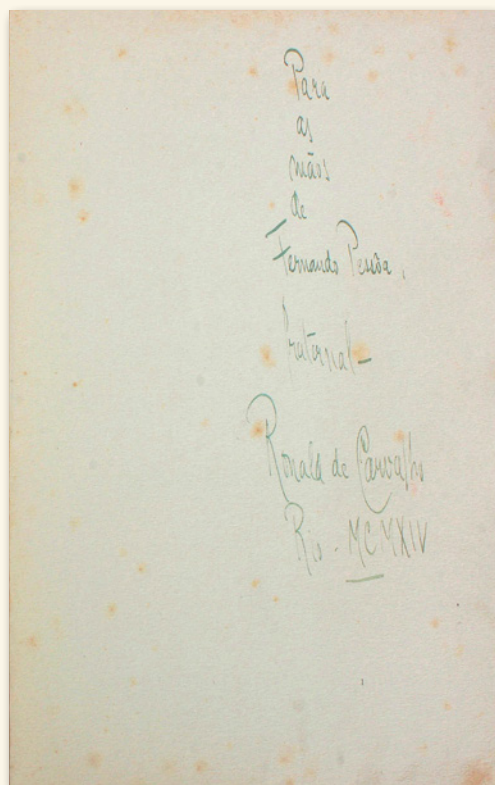 Para
as
mãos
de
Fernando Pessôa,
fraternal—
Ronald de Carvalho
Rio - MCMXIV